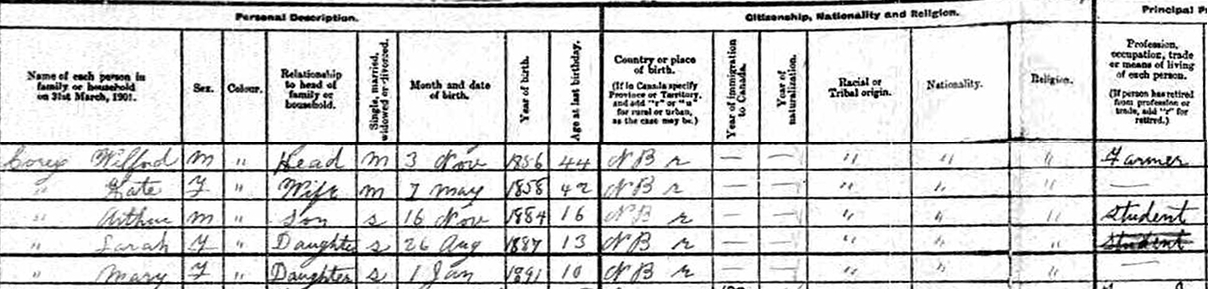 Personal Description. Citizenship, Nationality and Religion. Principal P
Name of each person in family or household on 31st March, 1901. Sex. Colour. Relationship to head of family or household. Single, married, widowed or divorced. Month and date of birth. Year of birth. Age at last birthday. Country or place of birth. (If in Canada specify Province or Territory, and add "r" or "u" for rural or urban, as the case may be.) Year of immigration to Canada. Year of naturalization. Racial or Tribal origin. Nationality. Religion. Profession, occupation, trade or means of living of each person. (If person has retired from profession or trade, add "r" for retired.)
Corey Wilford M " Head M 3 Nov 1856 44 N B r — — " " " Farmer
" Kate F " Wife M 7 May 1858 42 N B r — — " " " —
" Arthur M " Son S 16 Nov 1884 16 N B r — — " " " Student
" Sarah F " Daughter S 26 Aug 1887 13 N B r — — " " " Student
" Mary F " Daughter S 1 Jan 1891 10 N B r — — " " " —